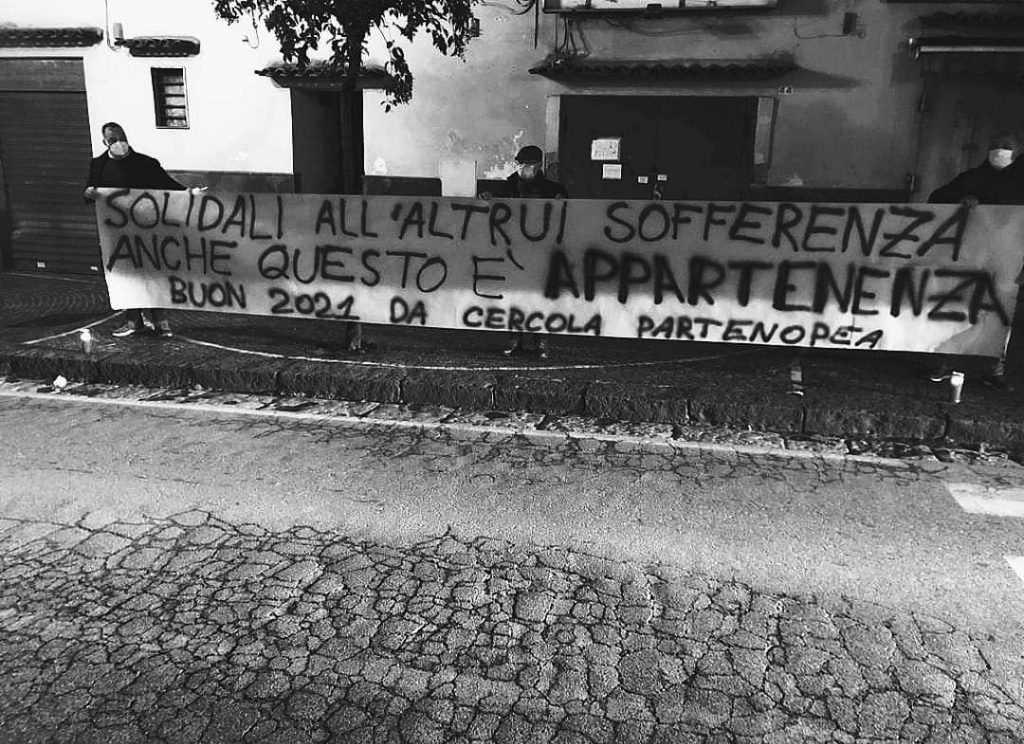 SOLIDALI ALL'ALTRUI SOFFERENZA
ANCHE QUESTO E' APPARTENENZA
BUON 2021 DA CERCOLA PARTENOPEA